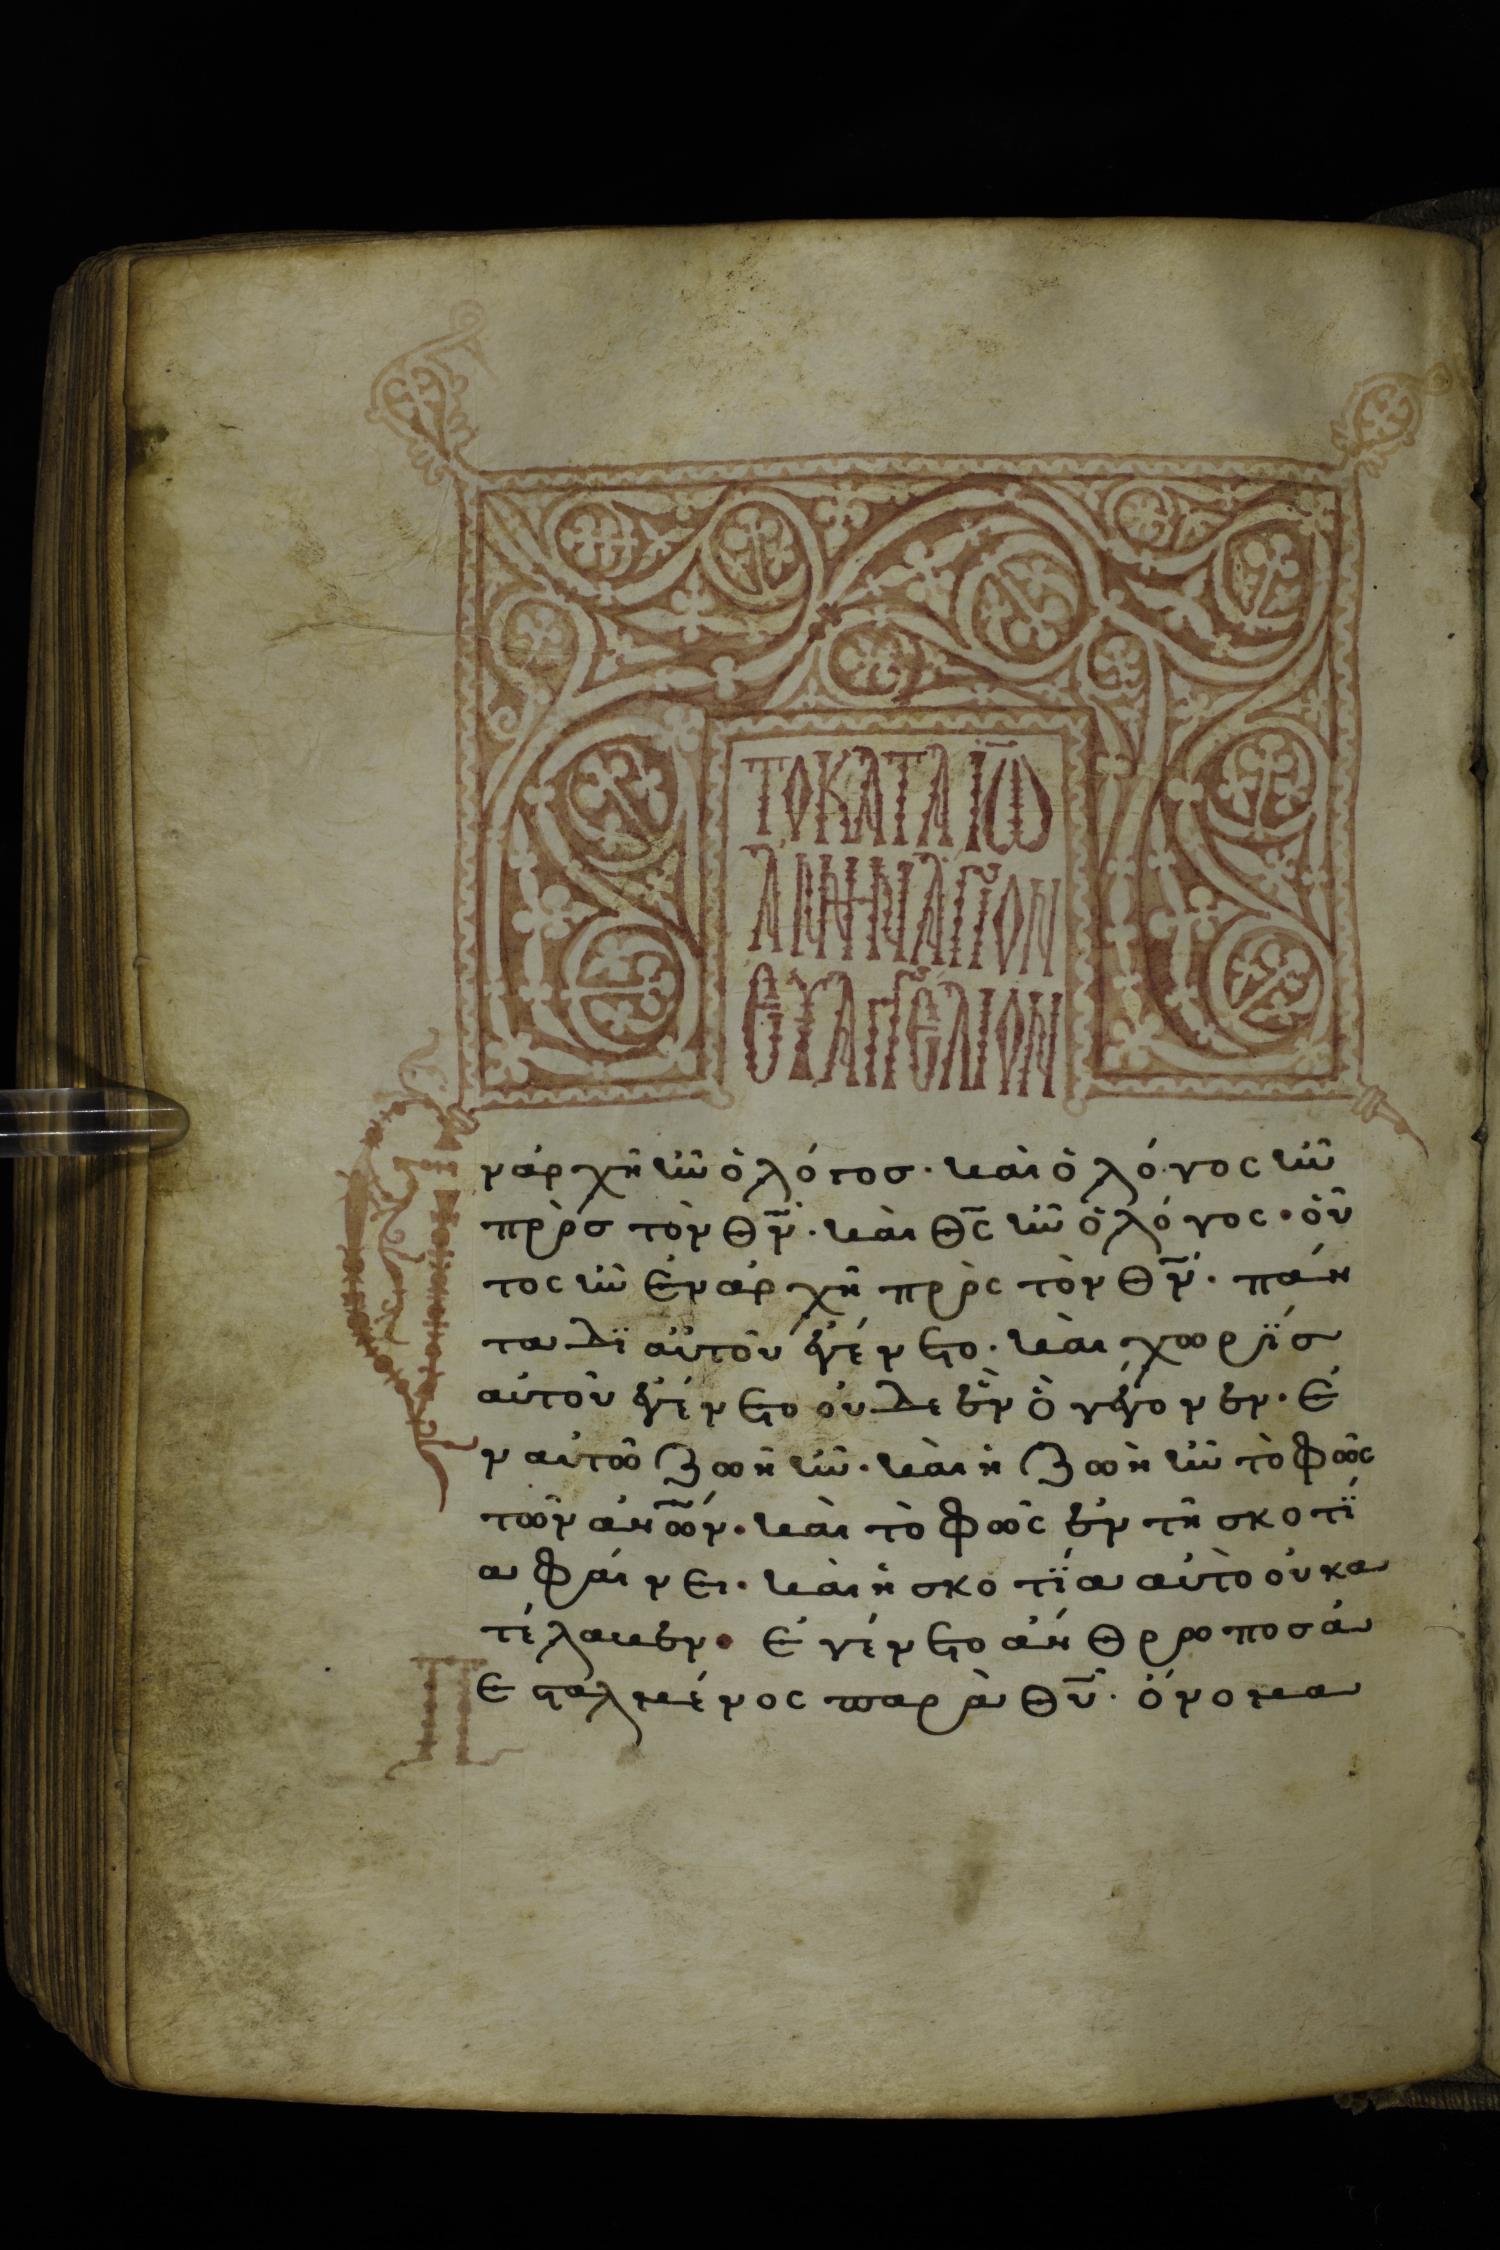 ΤΟ ΚΑΤΑ ΙΩ
ΑΝΝΗΝ ΑΓΙΟΝ
ΕΥΑΓΓΕΛΙΟΝ
Ἐν ἀρχῆ ἦν ὁ λόγοσ· καὶ ὁ λόγος ἦν
πρὸσ τὸν θ̅ν̅· καὶ θ̅ς̅ ἦν ὁ λόγος· οὗ
τος ἦν ἐν ἀρχῆ πρὸς τὸν θ̅ν̅· πάν
τα δϊ αὐτοῦ ἐγένετο· καὶ χωρΐσ
αὐτοῦ ἐγένετο οὐδε ἓν ὃ γέγονεν· ἐ
ν αὐτῶ ζωὴ ἦν· καὶ ἡ ζωὴ ἦν τὸ φῶς
τῶν ἀν̅ω̅ν̅· καὶ τὸ φῶς ἐν τῆ σκοτΐ
α φαίνει· καὶ ἡ σκοτΐα αὐτὸ οὐ κα
τέλαβεν· Ἐγένετο ἄνθρωποσ ἀ
Πεσταλμένος παρὰ θ̅υ̅· ὄνομα